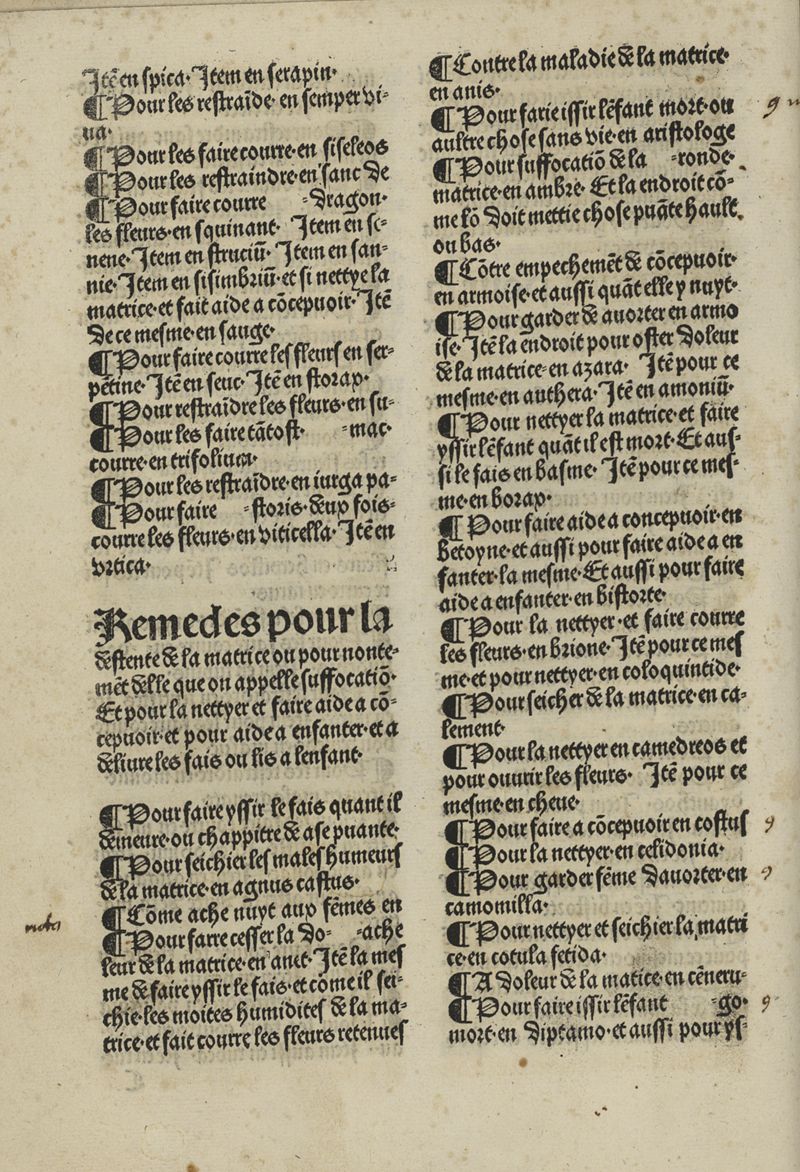 Itē en spica. Item en serapin.
¶ Pour les restraīde. en semper vi-
ua.
¶ Pour les faire courre. en siseleos
¶ Pour les restraindre. en sanc de
¶ Pour faire courre -dragon.
les fleurs. en squinant. Item en se-
nene. Item en struciū. Item en san-
nie. Item en sisimbriū. et si nettye la
matrice. et fait aide a cōcepuoir. Itē
de ce mesme. en sauge.
¶ Pour faire courre les fleurs en ser-
pētine. Itē en seuc. Itē en storax.
¶ Pour restraīdre les fleurs. en su-
¶ Pour les faire tātost. -mac.
courre. en trifolium.
¶ Pour les restraīdre. en iurga pa-
¶ Pour faire -storis. deux fois.
courre les fleurs. en viticella. Itē en
vrtica.
Remedes pour la
destente de la matrice ou pour nonte-
mēt delle que on appelle suffocatiō.
Et pour la nettyer et faire aide a cō-
cepuoir. et pour aide a enfanter. et a
deliure les fais ou lis a lenfant.
¶ Pour faire yssir le fais quant il
demeure. ou chappitre de ase puante.
¶ Pour seichier les males humeurs
de la matrice. en agnus castus.
¶ Cōme ache nuyt aux fēmes en
nota
¶ Pour farre cesser la do- -ache
leur de la matrice. en anet. Itē la mes
me de faire yssir le fais. et cōme il sei-
chie. les moites humidites de la ma-
trice. et fait courre les fleurs retenues
¶ Contre la maladie de la matrice.
en anis.
¶ Pour farie issir lēfant mort. ou
aultre chose sans vie. en aristologe
¶ Pour suffocatiō de la -ronde.
matrice. en ambre. Et la endroit cō-
me lō doit mettie chose puāte hault.
ou bas.
¶ Cōtre empechemēt de cōcepuoir.
en armoise. et aussi quāt elle y nuyt.
¶ Pour garder de auorter en armo
ise. Itē la endroit pour oster doleur
de la matrice. en azara. Itē pour ce
mesme. en authera. Itē en amoniū.
¶ Pour nettyer la matrice. et faire
yssir lēfant quāt il est mort. Et aus-
si le fais en basme. Itē pour ce mes-
me. en borax.
¶ Pour faire aide a concepuoir. en
betoyne. et aussi pour faire aide a en
fanter. la mesme. Et aussi pour faire
aide a enfanter. en bistorte.
¶ Pour la nettyer. et faire courre
les fleurs. en brione. Itē pour ce mes
me. et pour nettyer. en coloquintide.
¶ Pour seicher de la matrice. en ca-
lement.
¶ Pour la nettyer en camedreos et
pour ouurir les fleurs. Itē pour ce
mesme. en cheue.
¶ Pour faire a cōcepuoir en costus
¶ Pour la nettyer. en celidonia.
¶ Pour garder fēme dauorter. en
camomilla.
¶ Pour nettyer et seichier la matri
ce. en cotula fetida.
¶ A doleur de la matice. en cēneru-
¶ Pour faire issir lēfant -go.
mort. en diptamo. et aussi pour ys-